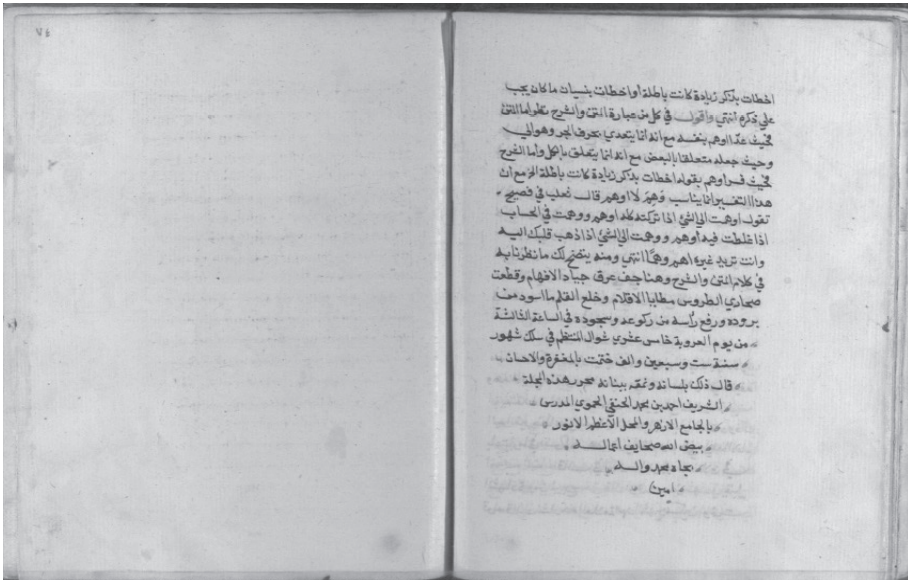 ٧٤
اخطات بذكر زيادة كانت باطلة او اخطات بنسيان ما كان يجب
علي ذكره انتهي واقول في كل من عبارة المتن والشرح نظر اما المتن
فحيث عدا اوهم بنفسه مع انه انما يتعدي بحرف الجر وهو الي
وحيث جعله متعلقا بالبعض مع انه انما يتعلق بالكل واما الشرح
فحيث فسر اوهم بقوله اخطات بذكر زيادة كانت باطلة الخ مع ان
هذا التفسير انما يناسب وهم لا اوهم قال ثعلب في فصيحه
تقول اوهمت الي الشي اذا تركته كله اوهم ووهمت في الحساب
اذا غلطت فيه اوهم ووهمت الي الشي اذا ذهب قلبك اليه
وانت تريد غيره اهم وهما انتهي ومنه يتضح لك ما نظرنا به
في كلام المتن والشرح وهنا جف عرق جياد الافهام وقطعت
صحاري الطروس مطايا الاقلام وخلع القلم ما اسود من
بروده ورفع راسه من ركوعه وسجوده في الساعة الثالثة
من يوم العروبة خامس عشري شوال المنتظم في سلك شهور
سنة ست وسبعين والف ختمت بالمغفرة والاحسان
قال ذلك بلسانه ونمقه ببنانه محرر هذه المجلة
الشريف احمد بن محمد الحنفي الحموي المدرس
بالجامع الازهر والمحل الاعظم الانور
بيض الله صحايف اعماله
بجاه محمد واله
امين